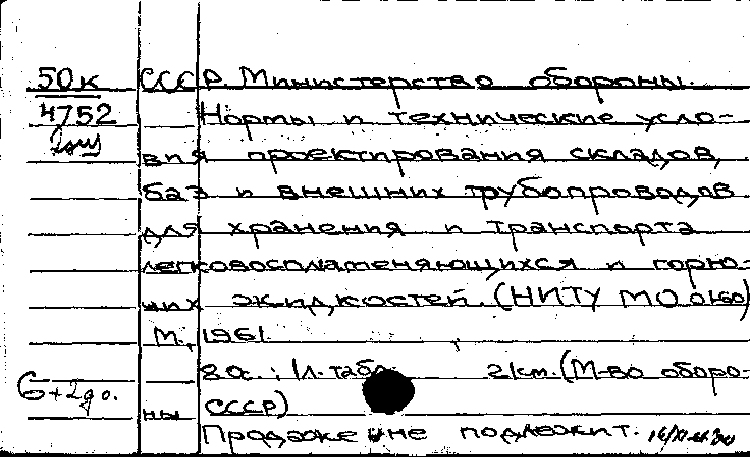 50к СССР. Министерство обороны.
4752 Нормы и технические усло-
вия проектирования складов,
баз и внешних трубопроводов
для хранения и транспорта
легковоспламеняющихся и горю-
щих жидкостей. (НИТУ МО 01-60)
М., 1961.
80с.; 1л. табл. 21см. (М-во оборо-
6+2до.
ны СССР)
Продаже не подлежит.